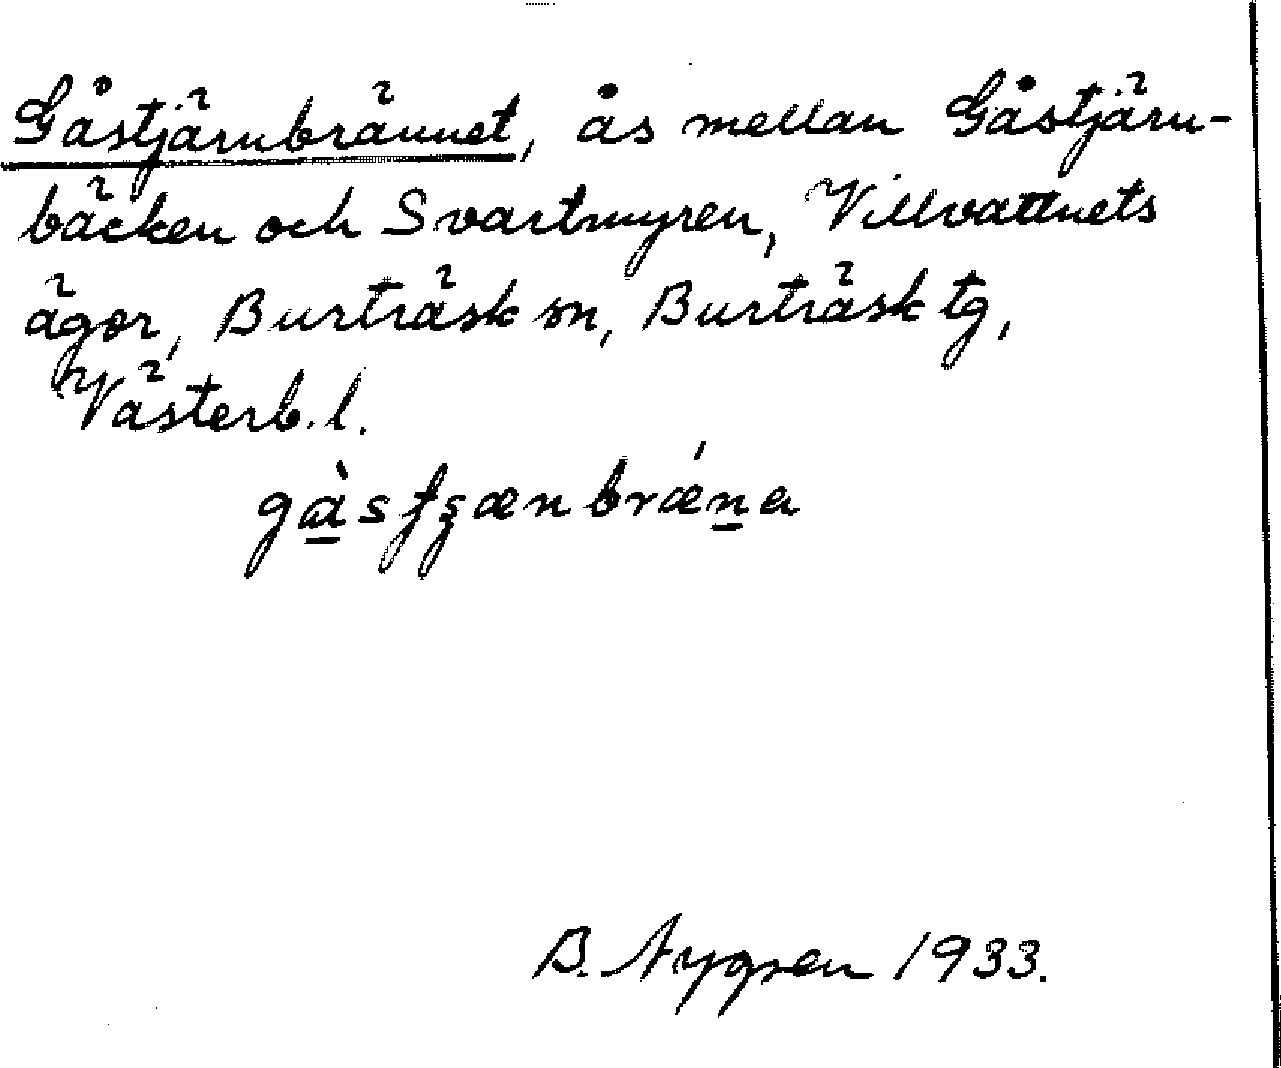 Gåstjärnbrännet, ås mellan Gåstjärn-
bäcken och Svartmyren, Villvattnets
ägor, Burträsk sn, Burträsk tg,
Västerb. l.
B. Nygren 1933.